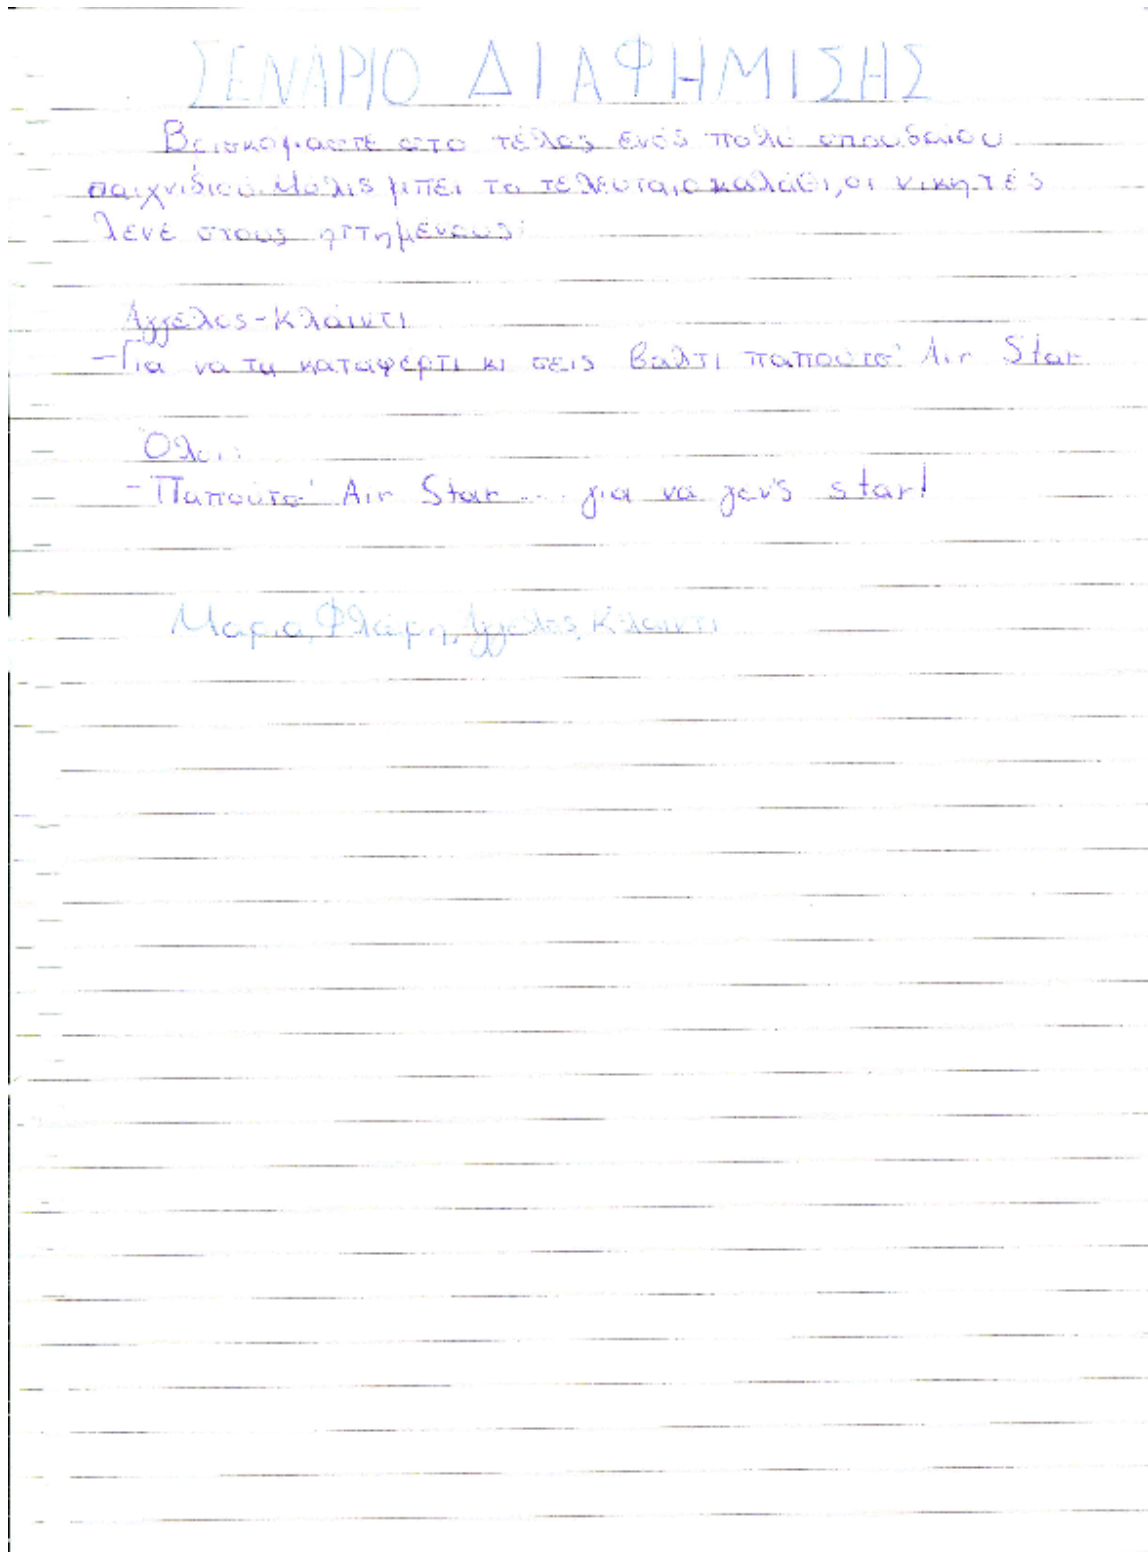 ΣΕΝΑΡΙΟ ΔΙΑΦΗΜΙΣΗΣ
Βρισκόμαστε στο τέλος ενός πολύ σπουδαίου
παιχνιδιού. Μόλις μπει το τελευταίο καλάθι, οι νικητές
λένε στους ηττημένους:
Άγγελος-Κλάιντι
-Για να τα καταφέρτι κι σεις βάλτι παπούτσ' Air Star
Όλοι:
-Παπούτσ' Air Star... για να γεν'ς star!
Μαρία, Φλώρη, Άγγελος, Κλάιντι